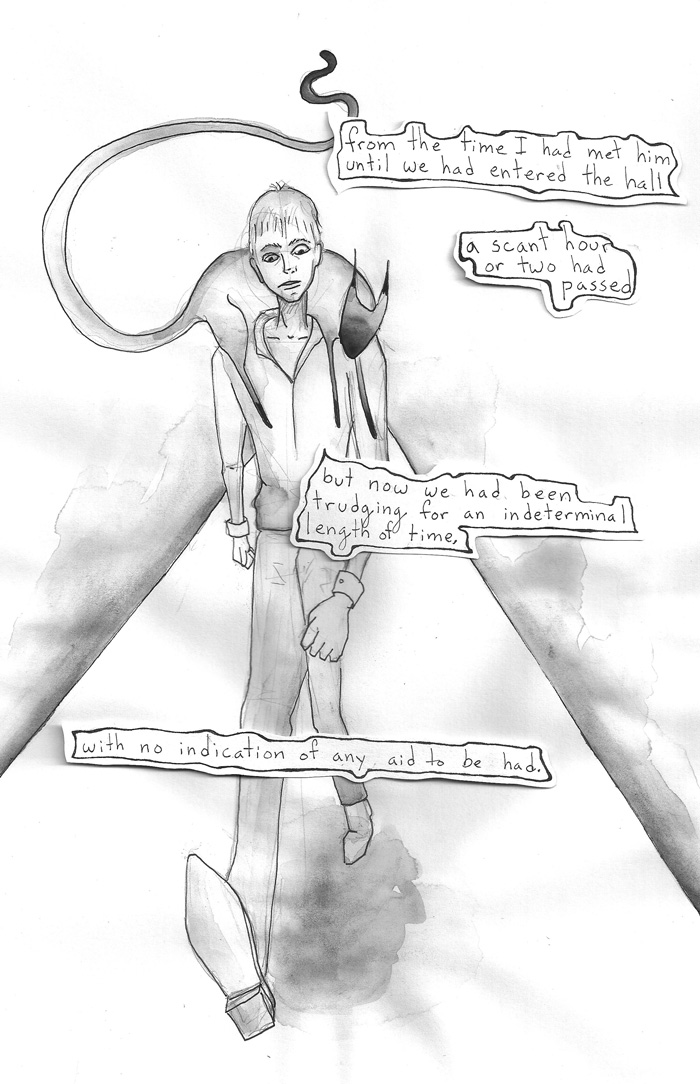 from the time I had met him
until we had entered the hall
a scant hour
or two had
passed
but now we had been
trudging for an indeterminal
length of time,
with no indication of any aid to be had.